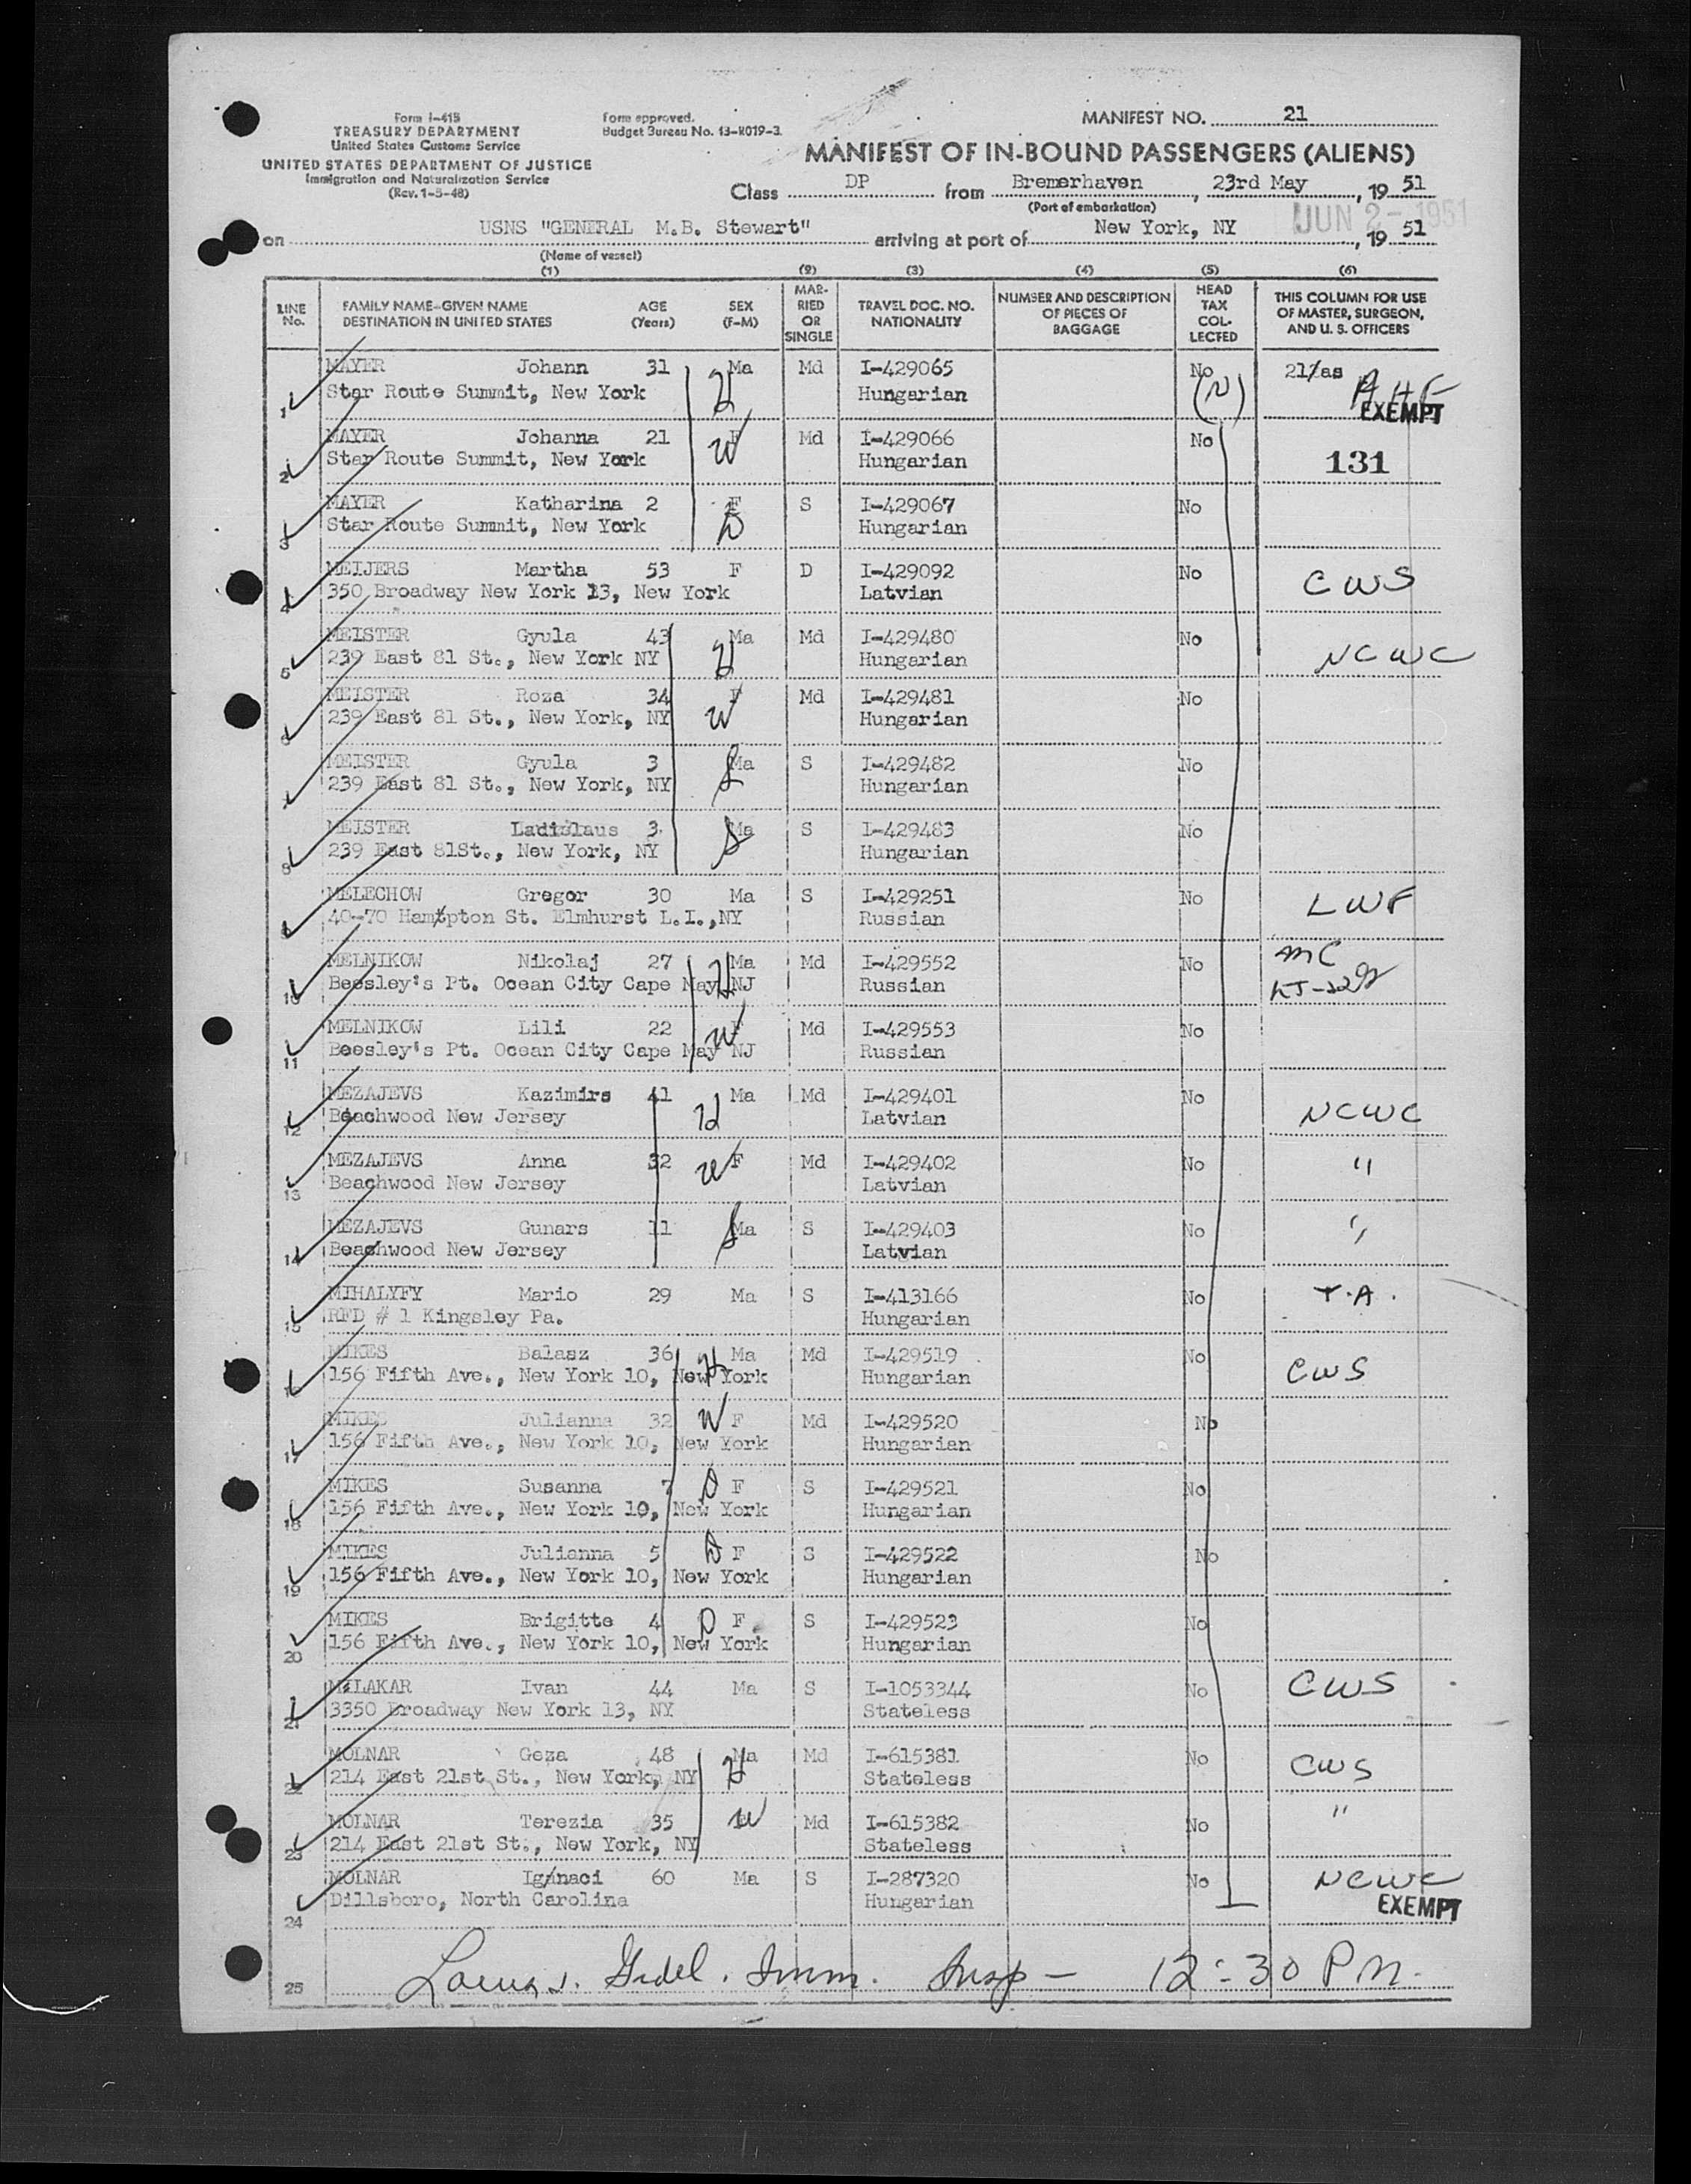 Form I-415
TREASURY DEPARTMENT
United States Customs Service
UNITED STATES DEPARTMENT OF JUSTICE
Immigration and Naturalization Service
(Rev. 1-5-48)
Form approved.
Budget Bureau No. 43-R019-3.
MANIFEST NO. 21
MANIFEST OF IN-BOUND PASSENGERS (ALIENS)
Class DP from Bremerhaven, 23rd May, 19 51
(Port of embarkation)
JUN 2 - 1951
on USNS "GENERAL M.B. Stewart" arriving at port of New York, NY, 19 51
(Name of vessel)
(1) (2) (3) (4) (5) (6)
LINE No. FAMILY NAME-GIVEN NAME DESTINATION IN UNITED STATES AGE (Years) SEX (F-M) MARRIED OR SINGLE TRAVEL DOC. NO. NATIONALITY NUMBER AND DESCRIPTION OF PIECES OF BAGGAGE HEAD TAX COLLECTED THIS COLUMN FOR USE OF MASTER, SURGEON, AND U. S. OFFICERS
1 MAYER Johann 31 Ma H Md I-429065 No 21/as
Star Route Summit, New York Hungarian (N) AHF EXEMPT
2 MAYER Johanna 21 F W Md I-429066 No
Star Route Summit, New York Hungarian 131
3 MAYER Katharina 2 F D S I-429067 No
Star Route Summit, New York Hungarian
4 MEIJERS Martha 53 F D I-429092 No CWS
350 Broadway New York 13, New York Latvian
5 MEISTER Gyula 43 Ma H Md I-429480 No NCWC
239 East 81 St., New York NY Hungarian
6 MEISTER Roza 34 F W Md I-429481 No
239 East 81 St., New York, NY Hungarian
7 MEISTER Gyula 3 Ma S S I-429482 No
239 East 81 St., New York, NY Hungarian
8 MEISTER Ladislaus 3 Ma S S I-429483 No
239 East 81St., New York, NY Hungarian
9 MELECHOW Gregor 30 Ma S I-429251 No LWF
40-70 Hampton St. Elmhurst L.I.,NY Russian
10 MELNIKOW Nikolaj 27 H Ma Md I-429552 No
Beesley's Pt. Ocean City Cape May NJ Russian
11 MELNIKOW Lili 22 W F Md I-429553 No
Beesley's Pt. Ocean City Cape May NJ Russian
12 MEZAJEVS Kazimirs 41 H Ma Md I-429401 No NCWC
Beachwood New Jersey Latvian
13 MEZAJEVS Anna 32 W F Md I-429402 No "
Beachwood New Jersey Latvian
14 MEZAJEVS Gunars 11 S Ma S I-429403 No "
Beachwood New Jersey Latvian
15 MIHALYFY Mario 29 Ma S I-413166 No T.A.
RFD # 1 Kingsley Pa. Hungarian
16 MIKES Balasz 36 H Ma Md I-429519 No CWS
156 Fifth Ave., New York 10, New York Hungarian
17 MIKES Julianna 32 W F Md I-429520 No
156 Fifth Ave., New York 10, New York Hungarian
18 MIKES Susanna 7 D F S I-429521 No
156 Fifth Ave., New York 10, New York Hungarian
19 MIKES Julianna 5 D F S I-429522 No
156 Fifth Ave., New York 10, New York Hungarian
20 MIKES Brigitte 4 D F S I-429523 No
156 Fifth Ave., New York 10, New York Hungarian
21 MILAKAR Ivan 44 Ma S I-1053344 No CWS
3350 Broadway New York 13, NY Stateless
22 MOLNAR Geza 48 H Ma Md I-615381 No CWS
214 East 21st St., New York, NY Stateless
23 MOLNAR Terezia 35 W Md I-615382 No "
214 East 21st St., New York, NY Stateless
24 MOLNAR Ignaci 60 Ma S I-287320 No NCWC
Dillsboro, North Carolina Hungarian EXEMPT
25 Imm. Insp - 12:30 PM.